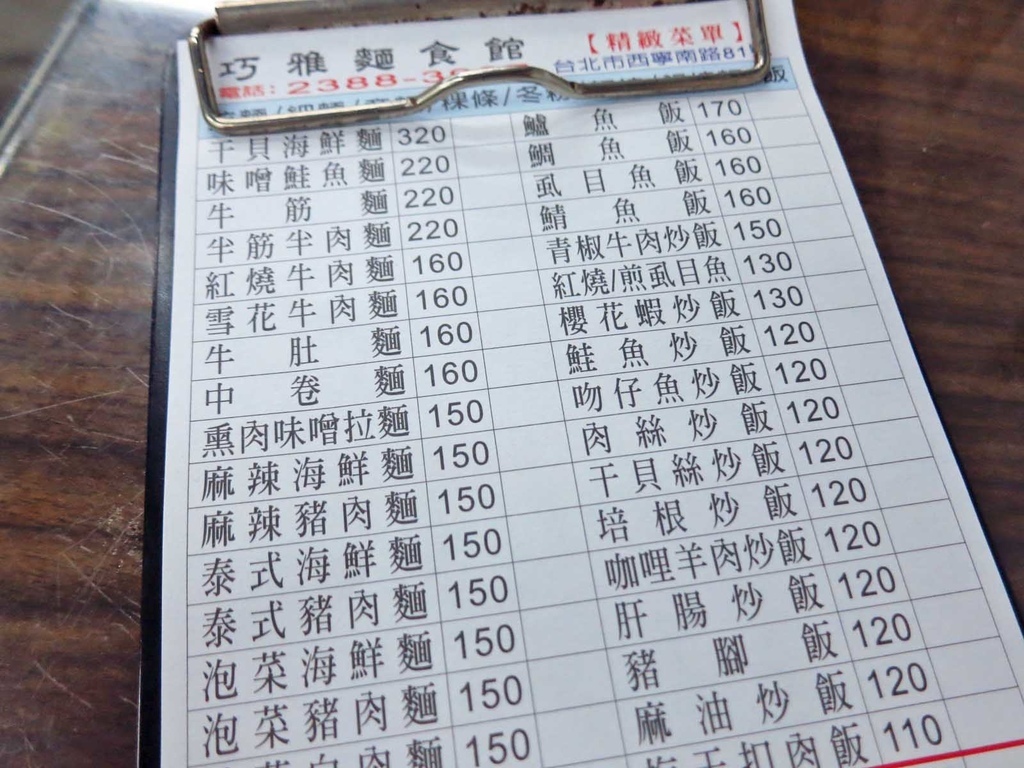 巧雅麵食館
【精緻菜單】
電話：2388-3
台北市西寧南路81
粿條/冬粉
飯
干貝海鮮麵 320
味噌鮭魚麵 220
牛筋麵 220
半筋半肉麵 220
紅燒牛肉麵 160
雪花牛肉麵 160
牛肚麵 160
中卷麵 160
熏肉味噌拉麵 150
麻辣海鮮麵 150
麻辣豬肉麵 150
泰式海鮮麵 150
泰式豬肉麵 150
泡菜海鮮麵 150
泡菜豬肉麵 150
肉麵 150
鱸魚飯 170
鯛魚飯 160
虱目魚飯 160
鯖魚飯 160
青椒牛肉炒飯 150
紅燒/煎虱目魚 130
櫻花蝦炒飯 130
鮭魚炒飯 120
吻仔魚炒飯 120
肉絲炒飯 120
干貝絲炒飯 120
培根炒飯 120
咖哩羊肉炒飯 120
肝腸炒飯 120
豬腳飯 120
麻油炒飯 120
干扣肉飯 110